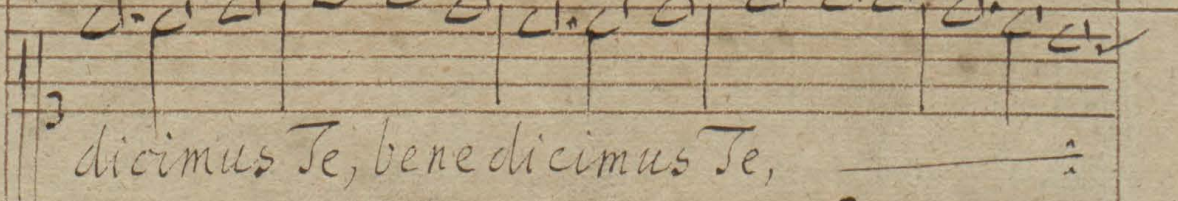 dicimus Te, benedicimus Te, ⸺ :